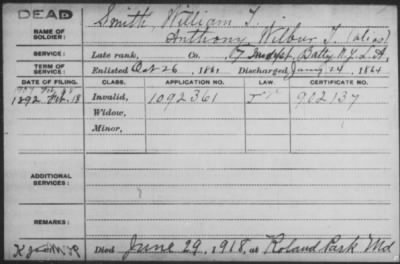 DEAD
NAME OF SOLDIER: Smith, William T.
Anthony, Wilbur T. (alias)
SERVICE: Late rank, Co. 7 Indpt. Batty N.Y. L.A.
TERM OF SERVICE: Enlisted Oct 26, 1861 Discharged Jany 24, 1864
DATE OF FILING. CLASS. APPLICATION NO. LAW. CERTIFICATE NO.
1892 Feb. 18 Invalid, 1092361 902137
Widow,
Minor,
ADDITIONAL SERVICES:
REMARKS:
Died June 29, 1918, at Roland Park Md